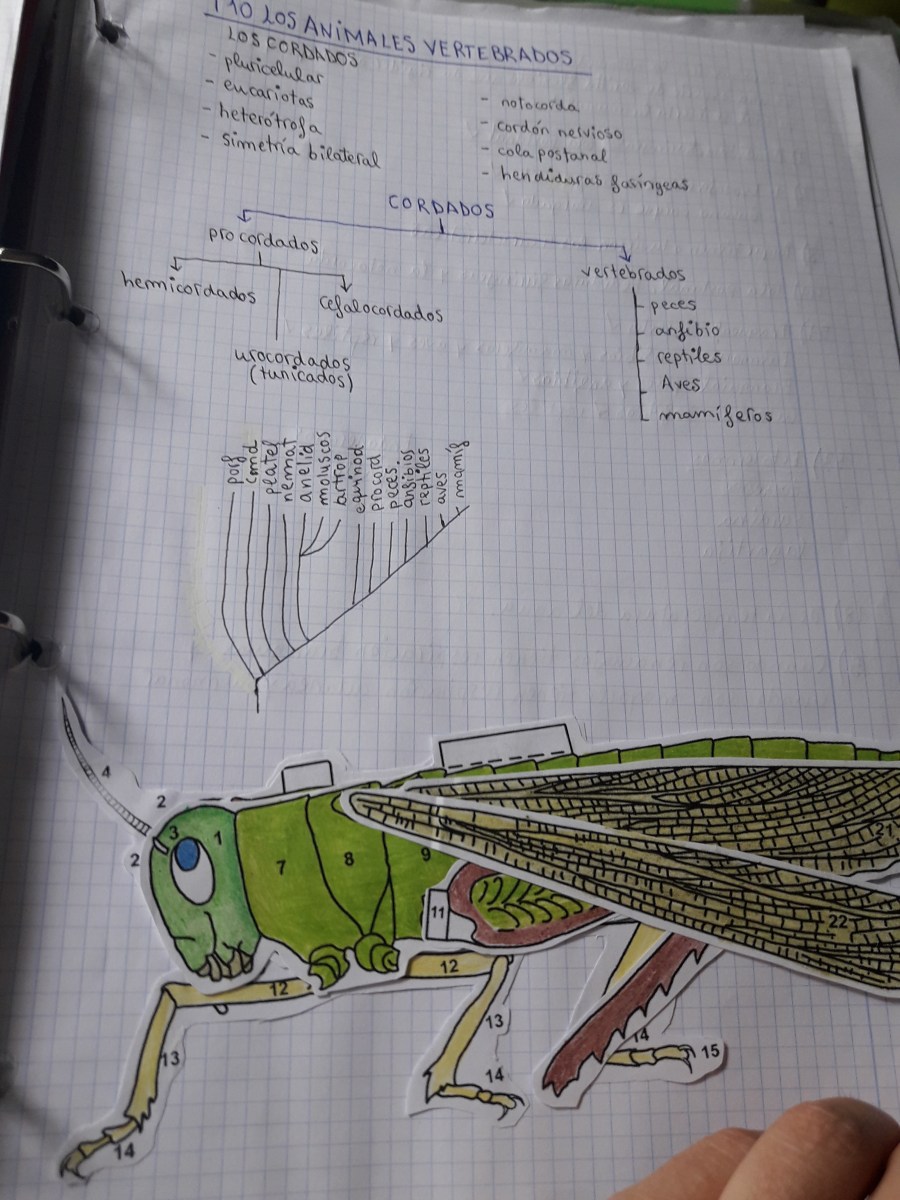 T10 LOS ANIMALES VERTEBRADOS
LOS CORDADOS
- pluricelular
- eucariotas
- heterótrofa
- Simmetría bilateral
- notocorda
- cordón nervioso
- cola postanal
- hendiduras fasíngeas
CORDADOS
procordados
hemicordados
cefalocordados
urocordados
(tunicados)
vertebrados
peces
anfibio
reptiles
Aves
mamíferos
porf
cnid
platel
nemat
anelid
moluscos
artrop
equinod
procord
peces.
anfibios
reptiles
aves
mamíf
4
2
3
1
2
7
8
9
11
12
12
13
13
14
14
14
15
21
22